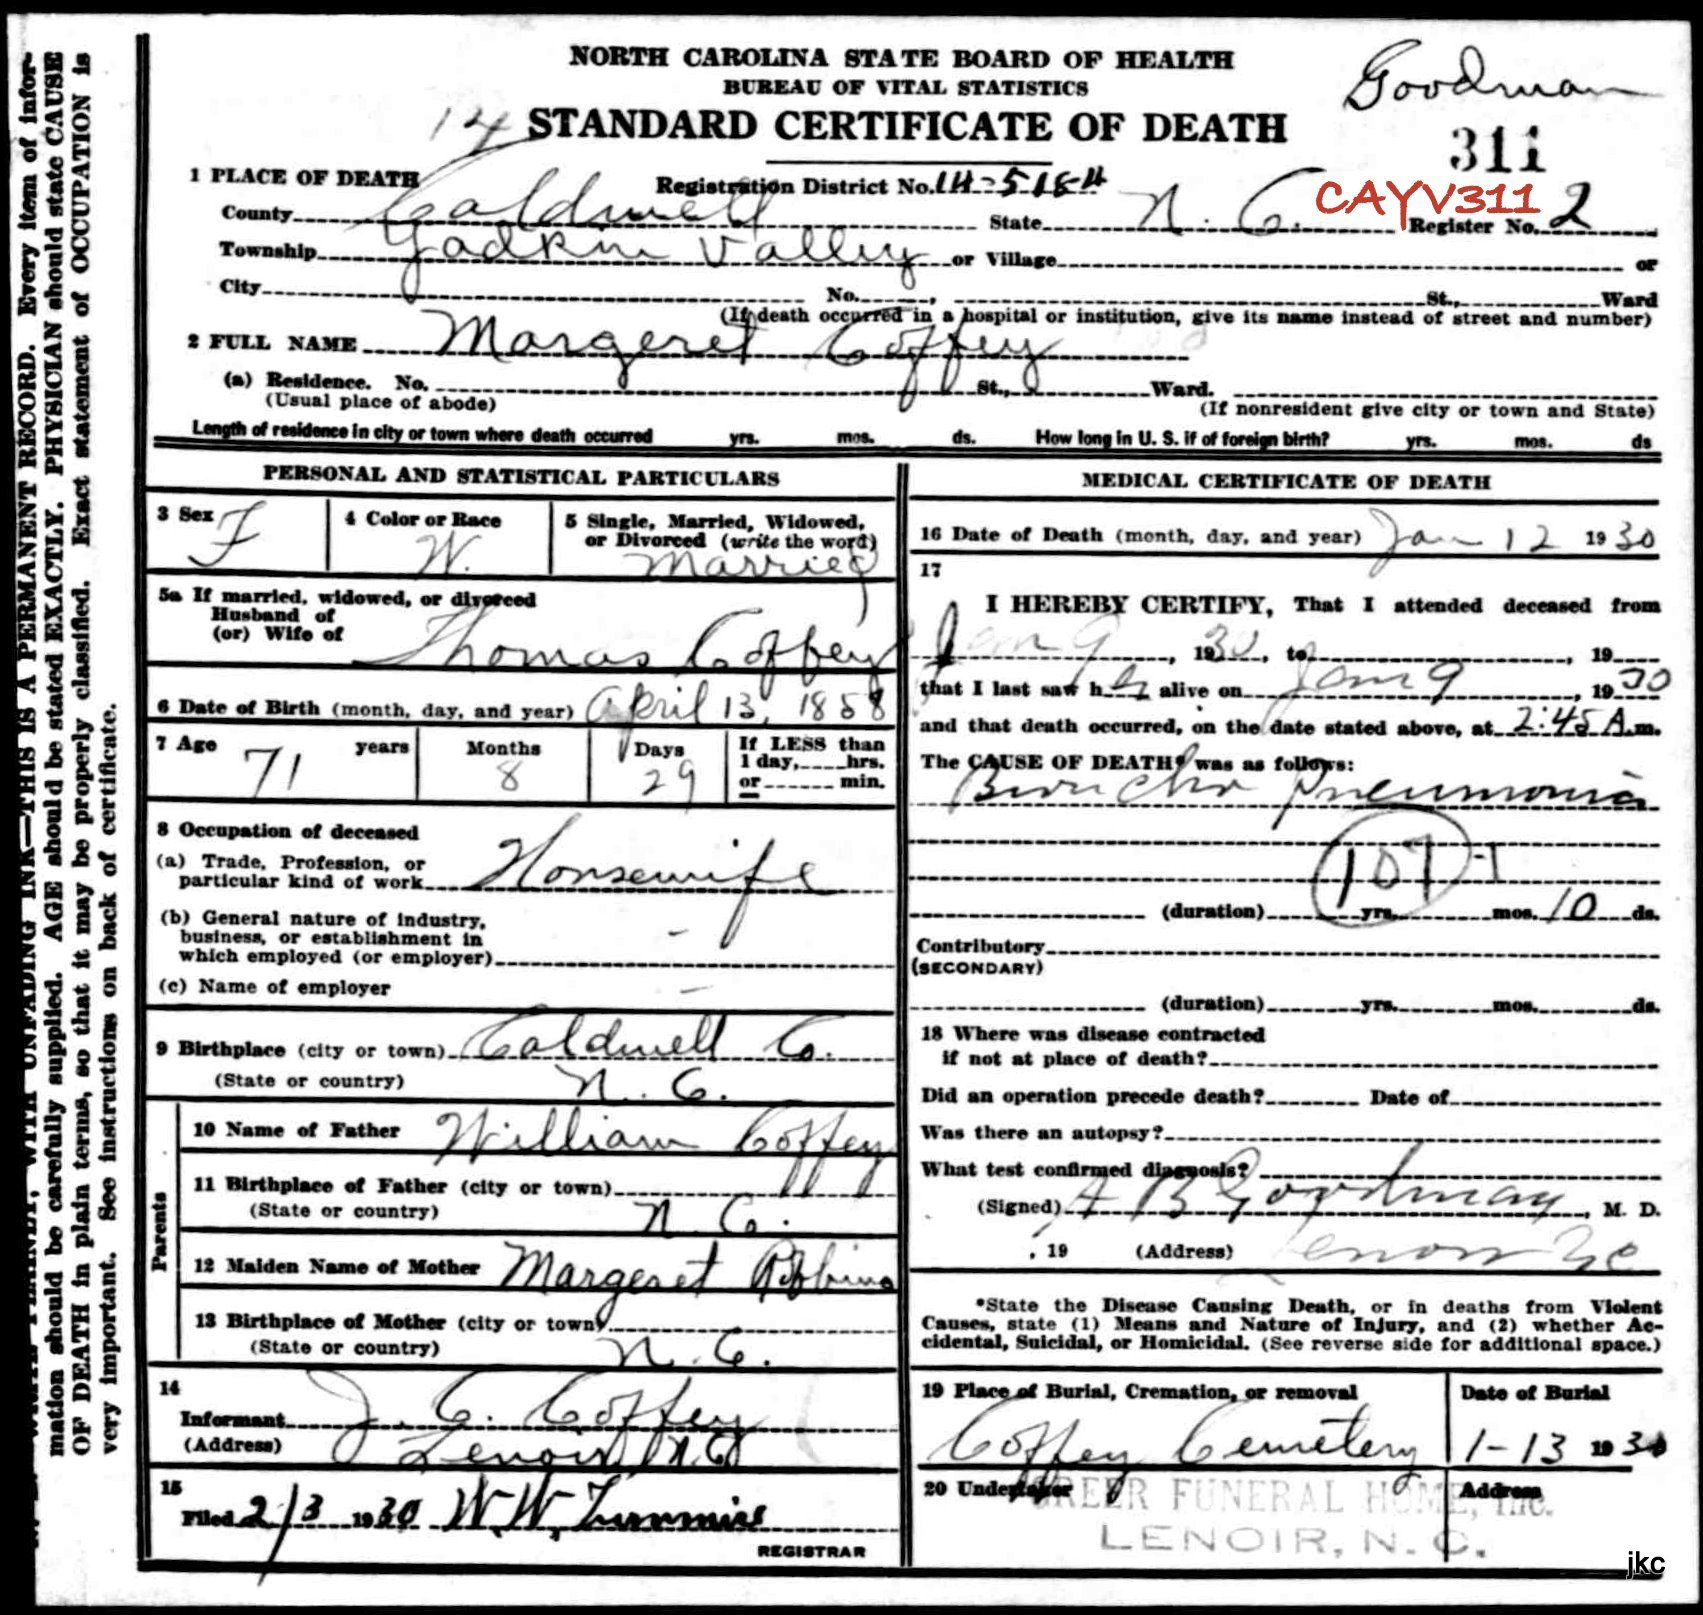 NORTH CAROLINA STATE BOARD OF HEALTH
BUREAU OF VITAL STATISTICS
Goodman
14 STANDARD CERTIFICATE OF DEATH
311
1 PLACE OF DEATH
Registration District No. 14-5184
CAYV311
County Caldwell State N. C. Register No. 2
Township Yadkin Valley or Village or
City No. , St., Ward
(If death occurred in a hospital or institution, give its name instead of street and number)
2 FULL NAME Margeret Coffey
(a) Residence. No. St., Ward.
(Usual place of abode) (If nonresident give city or town and State)
Length of residence in city or town where death occurred yrs. mos. ds. How long in U. S. if of foreign birth? yrs. mos. ds
PERSONAL AND STATISTICAL PARTICULARS
3 Sex F
4 Color or Race W.
5 Single, Married, Widowed, or Divorced (write the word) Married
5a If married, widowed, or divorced
Husband of
(or) Wife of Thomas Coffey
6 Date of Birth (month, day, and year) April 13, 1858
7 Age 71 years Months 8 Days 29 If LESS than 1 day, hrs. or min.
8 Occupation of deceased
(a) Trade, Profession, or
particular kind of work Housewife
(b) General nature of industry,
business, or establishment in
which employed (or employer) -
(c) Name of employer -
9 Birthplace (city or town) Caldwell Co.
(State or country) N. C.
Parents
10 Name of Father William Coffey
11 Birthplace of Father (city or town)
(State or country) N. C.
12 Maiden Name of Mother Margeret Robbins
13 Birthplace of Mother (city or town)
(State or country) N. C.
14
Informant J. C. Coffey
(Address) Lenoir, N.C.
15
Filed 2/3 1930 W. W.
REGISTRAR
MEDICAL CERTIFICATE OF DEATH
16 Date of Death (month, day, and year) Jan 12 1930
17
I HEREBY CERTIFY, That I attended deceased from
Jan 9, 1930, to , 19
that I last saw her alive on Jan 9, 1930
and that death occurred, on the date stated above, at 2:45 A.m.
The CAUSE OF DEATH* was as follows:
Broncho Pneumonia
107-1
(duration) yrs. mos. 10 ds.
Contributory
(SECONDARY)
(duration) yrs. mos. ds.
18 Where was disease contracted
if not at place of death?
Did an operation precede death? Date of
Was there an autopsy?
What test confirmed diagnosis?
(Signed) A B Goodman, M. D.
, 19 (Address) Lenoir NC
*State the Disease Causing Death, or in deaths from Violent
Causes, state (1) Means and Nature of Injury, and (2) whether Ac-
cidental, Suicidal, or Homicidal. (See reverse side for additional space.)
19 Place of Burial, Cremation, or removal Date of Burial
Coffey Cemetery 1-13 1930
20 Undertaker Address
GREER FUNERAL HOME, Inc.
LENOIR, N. C.
jkc
WRITE PLAINLY, WITH UNFADING INK—THIS IS A PERMANENT RECORD. Every item of infor-
mation should be carefully supplied. AGE should be stated EXACTLY. PHYSICIAN should state CAUSE
OF DEATH in plain terms, so that it may be properly classified. Exact statement of OCCUPATION is
very important. See instructions on back of certificate.